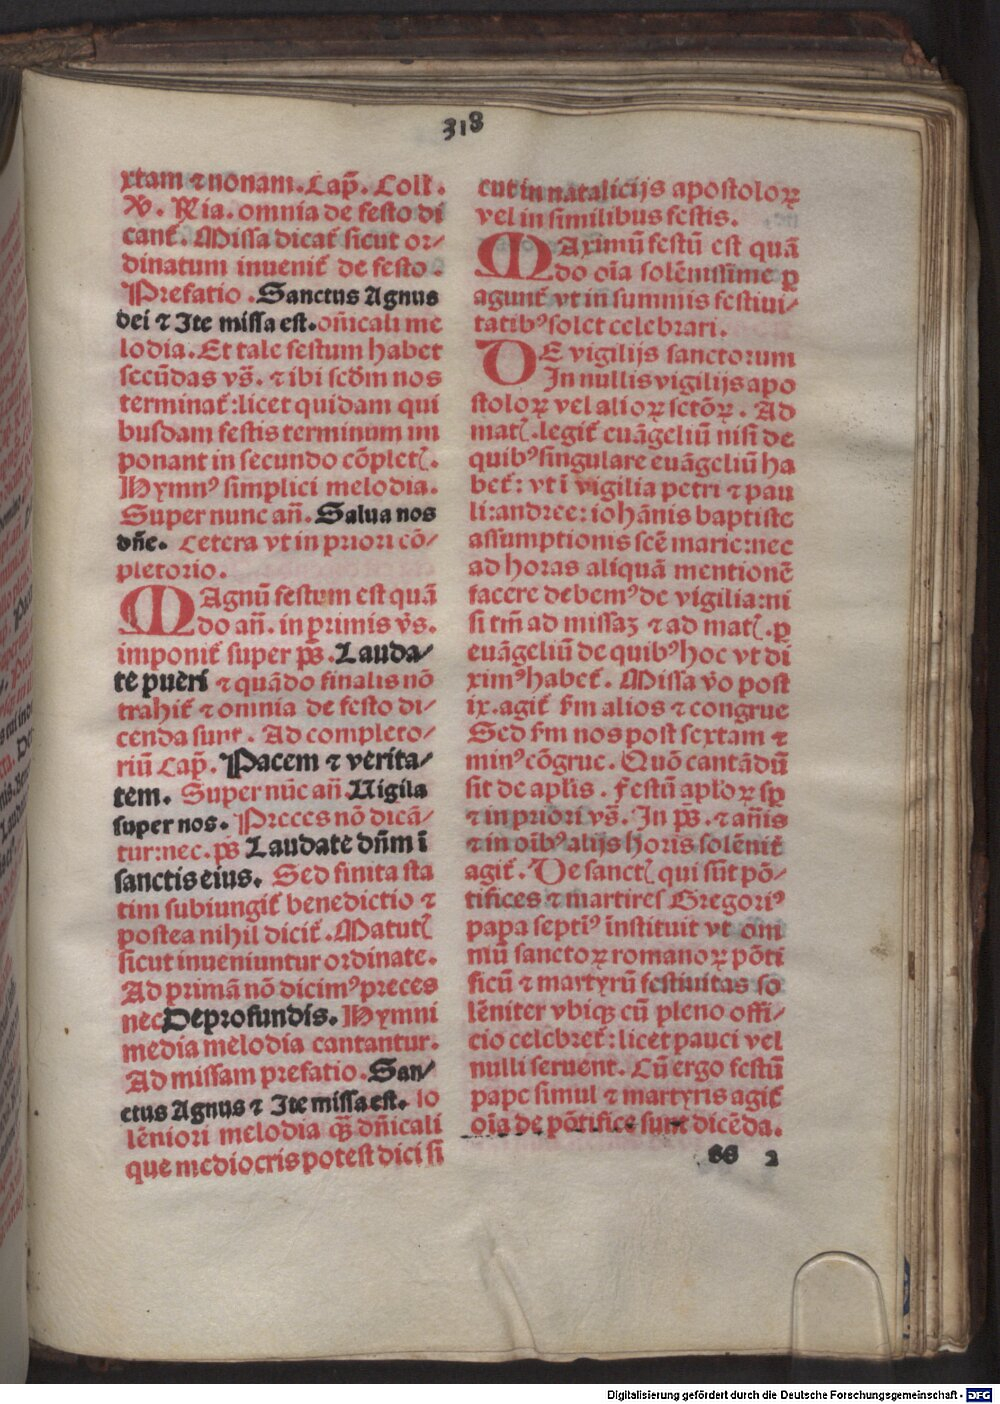 318
xtam ⁊ nonam. Cap̄. Coll̄.
V̄. R̄ia. omnia de festo di
cant̄. Missa dicat̄ sicut or⸗
dinatum invenit̄ de festo.
Prefatio. Sanctus Agnus
dei ⁊ Ite missa est. oñicali me
lodia. Et tale festum habet
secūdas vs̄. ⁊ ibi scd̄m nos
terminat̄: licet quidam qui
busdam festis terminum im
ponant in secundo cōplet̄.
Hymnꝰ simplici melodia.
Super nunc añ. Salua nos
dñe. Cetera vt in priori cō⸗
pletorio.
MAgnū festum est quā
do añ. in primis vs̄.
imponit̄ super ps̄. Lauda⸗
te pueri ⁊ quādo finalis nō
trahit̄ ⁊ omnia de festo di⸗
cenda sunt. Ad completo⸗
riū Cap̄. Pacem ⁊ verita⸗
tem. Super nūc añ. Uigila
super nos. Preces nō dicā⸗
tur: nec. ps̄ Laudate dñm ī
sanctis eius. Sed finita sta
tim subiungit̄ benedictio ⁊
postea nihil dicit̄. Matut̄
sicut inueniuntur ordinate.
Ad primā nō dicimꝰ preces
nec De profundis. Hymni
media melodia cantantur.
Ad missam prefatio. San⸗
ctus Agnus ⁊ Ite missa est. so
lēniori melodia qȝ dñicali
que mediocris potest dici si
cut in natalicijs apostoloꝝ
vel in similibus festis.
MAximū festū est quā
do oīa solēnissime p
agunt̄ vt in summis festiui⸗
tatibꝰ solet celebrari.
DE vigilijs sanctorum
In nullis vigilijs apo
stoloꝝ vel alioꝝ sctōꝝ. Ad
mat̄. legit̄ euāgeliū nisi de
quibꝰ singulare euāgeliū ha
bet̄: vt ī vigilia petri ⁊ pau
li: andree: iohānis baptiste
assumptionis scē marie: nec
ad horas aliquā mentionē
facere debemꝰ de vigilia: ni
si tm̄ ad missaȝ ⁊ ad mat̄. ꝑ
euāgeliū de quibꝰ hoc vt di
ximꝰ habet̄. Missa v̄o post
ix. agit̄ fm alios ⁊ congrue
Sed fm nos post sextam ⁊
minꝰ cōgrue. Quō cantādū
sit de apl̄is. Festū apl̄oꝝ sp̄
⁊ in priori vs̄. In ps̄. ⁊ añis
⁊ in oībꝰ alijs horis solēnit̄
agit̄. De sanct̄ qui sūt pō⸗
tifices ⁊ martires Gregoriꝰ
papa septiꝰ īnstituit vt om
niū sanctoꝝ romanoꝝ pōti
ficū ⁊ martyrū festiuitas so
lēniter vbiqȝ cū pleno offi⸗
cio celebret̄: licet pauci vel
nulli seruent. Cū ergo festū
pape simul ⁊ martyris agit̄
oīa de pōtifice sunt dicēda.
GG 2
Digitalisierung gefördert durch die Deutsche Forschungsgemeinschaft - DFG